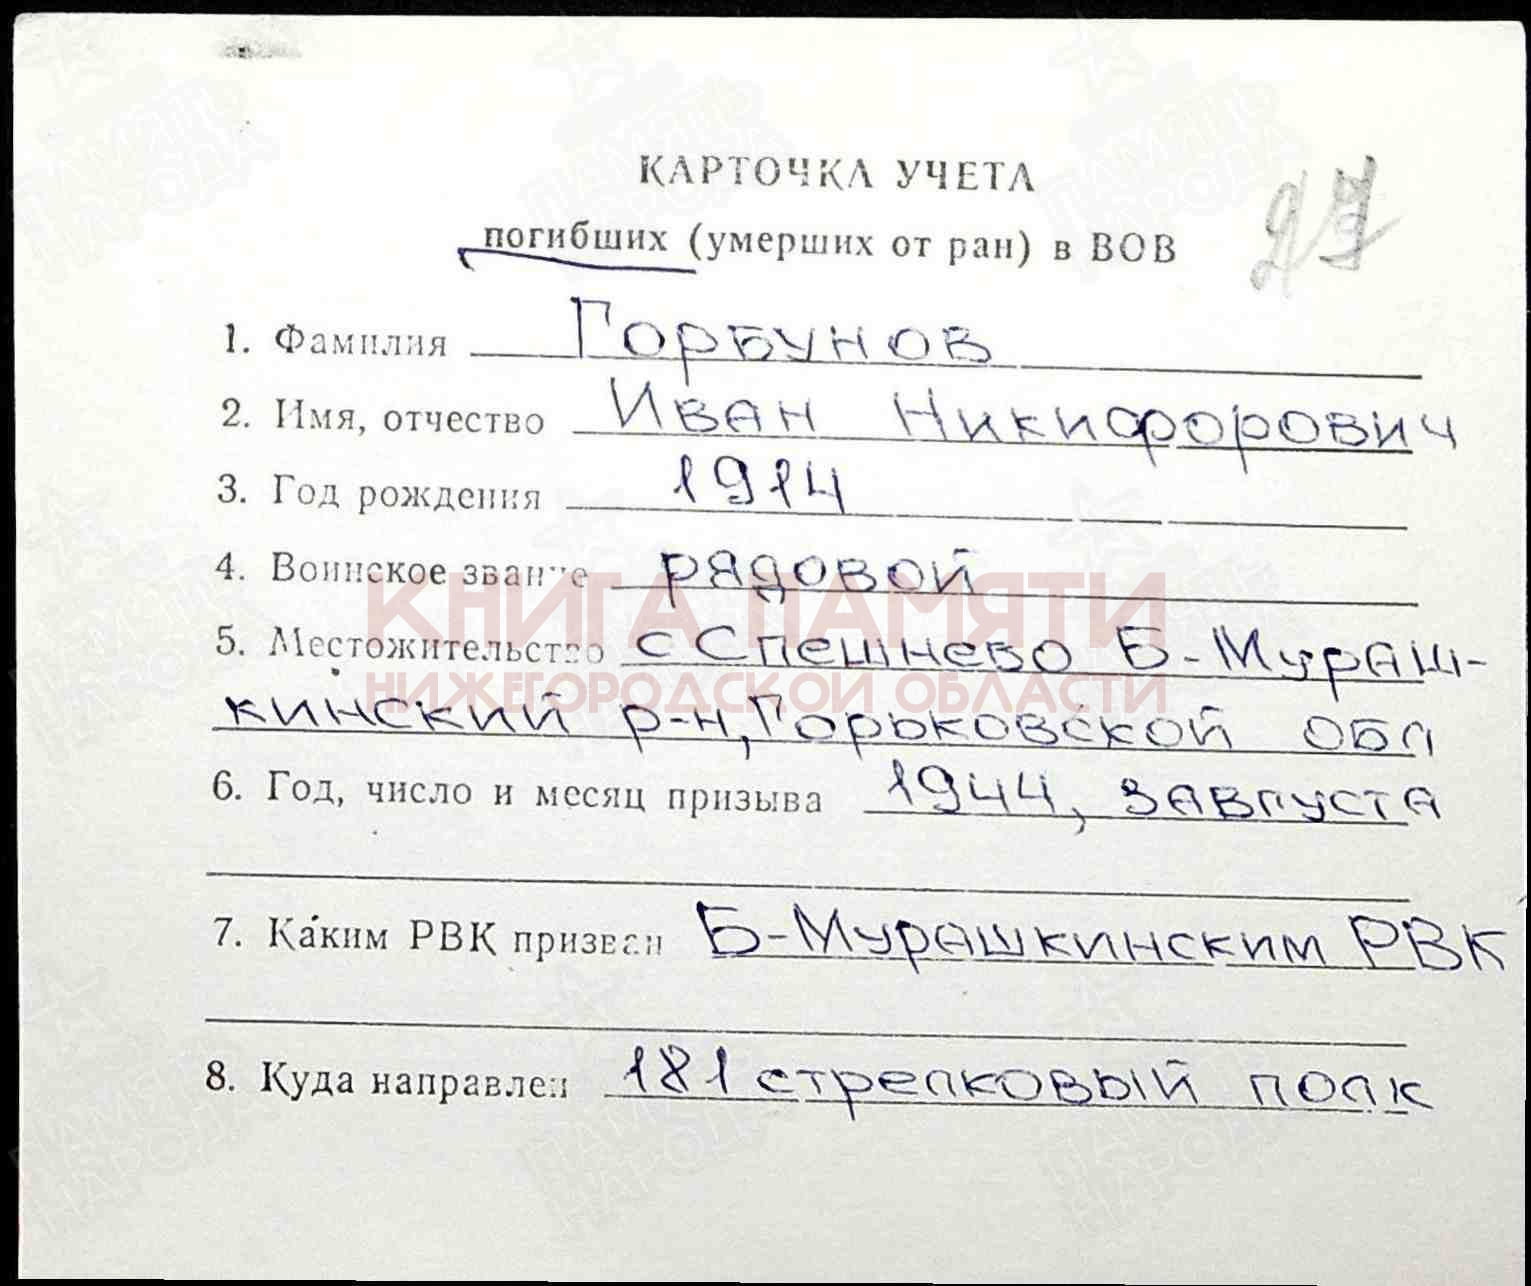 КАРТОЧКА УЧЕТА
погибших (умерших от ран) в ВОВ
27
1. Фамилия Горбунов
2. Имя, отчество Иван Никифорович
3. Год рождения 1914
4. Воинское звание рядовой
КНИГА ПАМЯТИ
5. Местожительство с Спешнево Б-Мураш-
НИЖЕГОРОДСКОЙ ОБЛАСТИ
кинский р-н, Горьковской обл
6. Год, число и месяц призыва 1944, 3 августа
7. Каким РВК призван Б-Мурашкинским РВК
8. Куда направлен 181 стрелковый полк